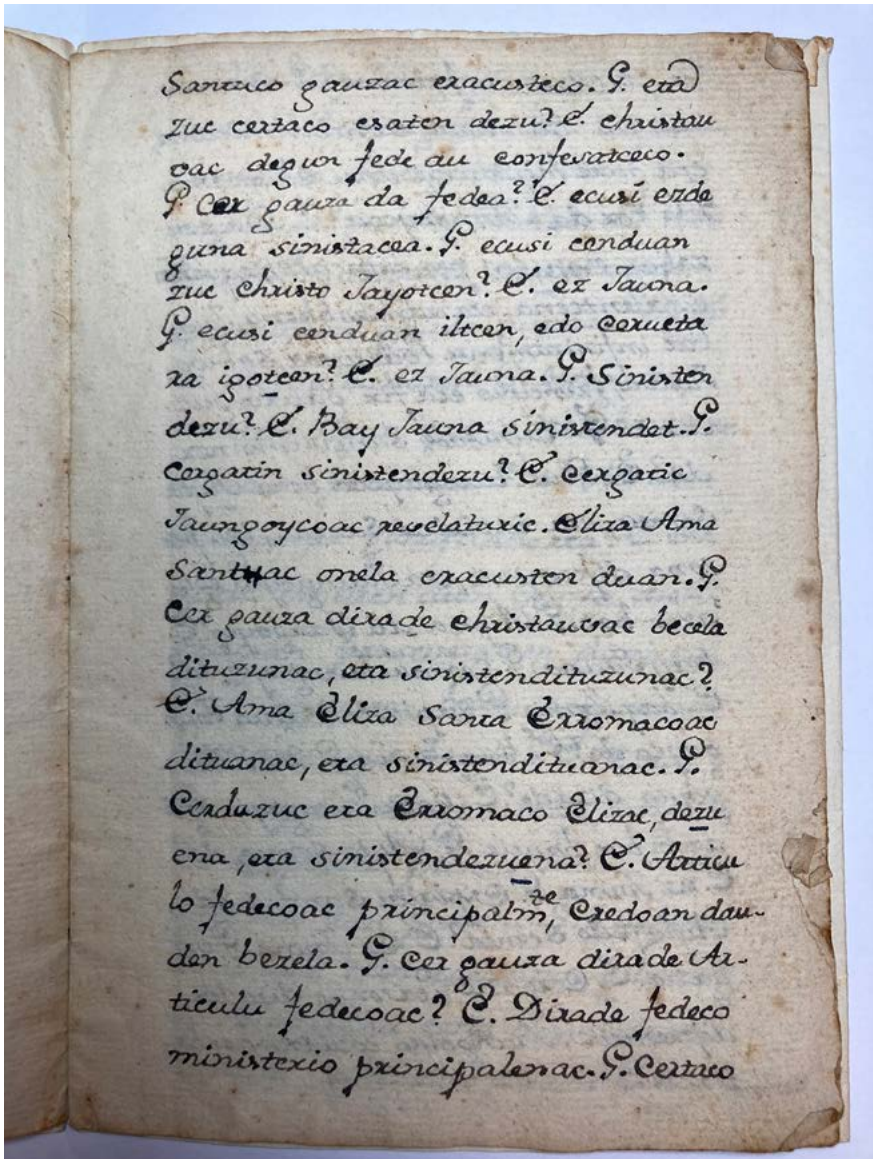 Santuco gauzac eracusteco. G. eta
zuc certaco esaten dezu? E. christau
oac degun fede au confesatceco.
G. Cer gauza da fedea? E. ecusi ezde
guna sinistacea. G. ecusi cenduan
zuc christo Jayotcen? E. ez Jauna.
G. ecusi cenduan iltcen, edo Cerueta
ra igotcen? E. ez Jauna. G. Sinisten
dezu? E. Bay Jauna sinistendet. G.
Cergatin sinistendezu? E. Cergatic
Jaungoycoac revelaturic. Eliza Ama
Santuac onela eracusten duan. G.
Cer gauza dirade christauoac becela
dituzunac, eta sinistendituzunac?
E. Ama Eliza Santa Erromacoac
dituanac, eta sinistendituanac. G.
Cerduzuc eta Erromaco Elizac, dezu
ena, eta sinistendezuena? E. Articu
lo fedecoac principalmte, Credoan dau-
den bezela. G. Cer gauza dirade Ar-
ticulu fedecoac? E. Dirade fedeco
ministerio principalenac. G. Certaco